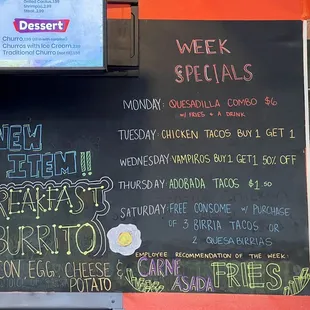 Dessert
Churro
Churros with Ice Cream
Traditional Churro
WEEK
SPECIALS
MONDAY: QUESADILLA COMBO $6
W/ FRIES & A DRINK
TUESDAY: CHICKEN TACOS BUY 1 GET 1
WEDNESDAY: VAMPIROS BUY 1 GET 1 50% OFF
THURSDAY: ADOBADA TACOS $1.50
SATURDAY: FREE CONSOME W/ PURCHASE
OF 3 BIRRIA TACOS OR
2 QUESABIRRIAS
EMPLOYEE RECOMMENDATION OF THE WEEK:
CARNE
ASADA
FRIES
NEW
ITEM!!
BREAKFAST
BURRITO
BACON EGG CHEESE &
POTATO